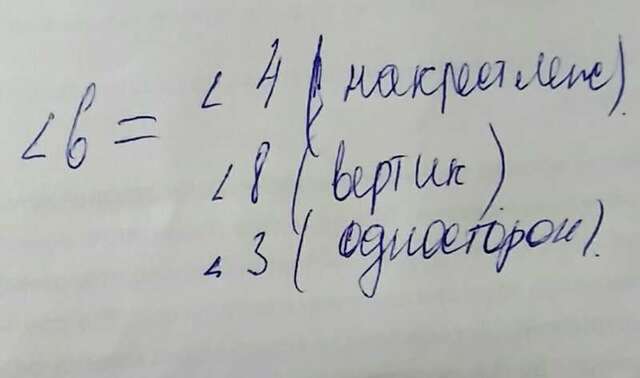 ∠6 = ∠4 (накрест леж)
∠8 (вертик)
∠3 (односторон).